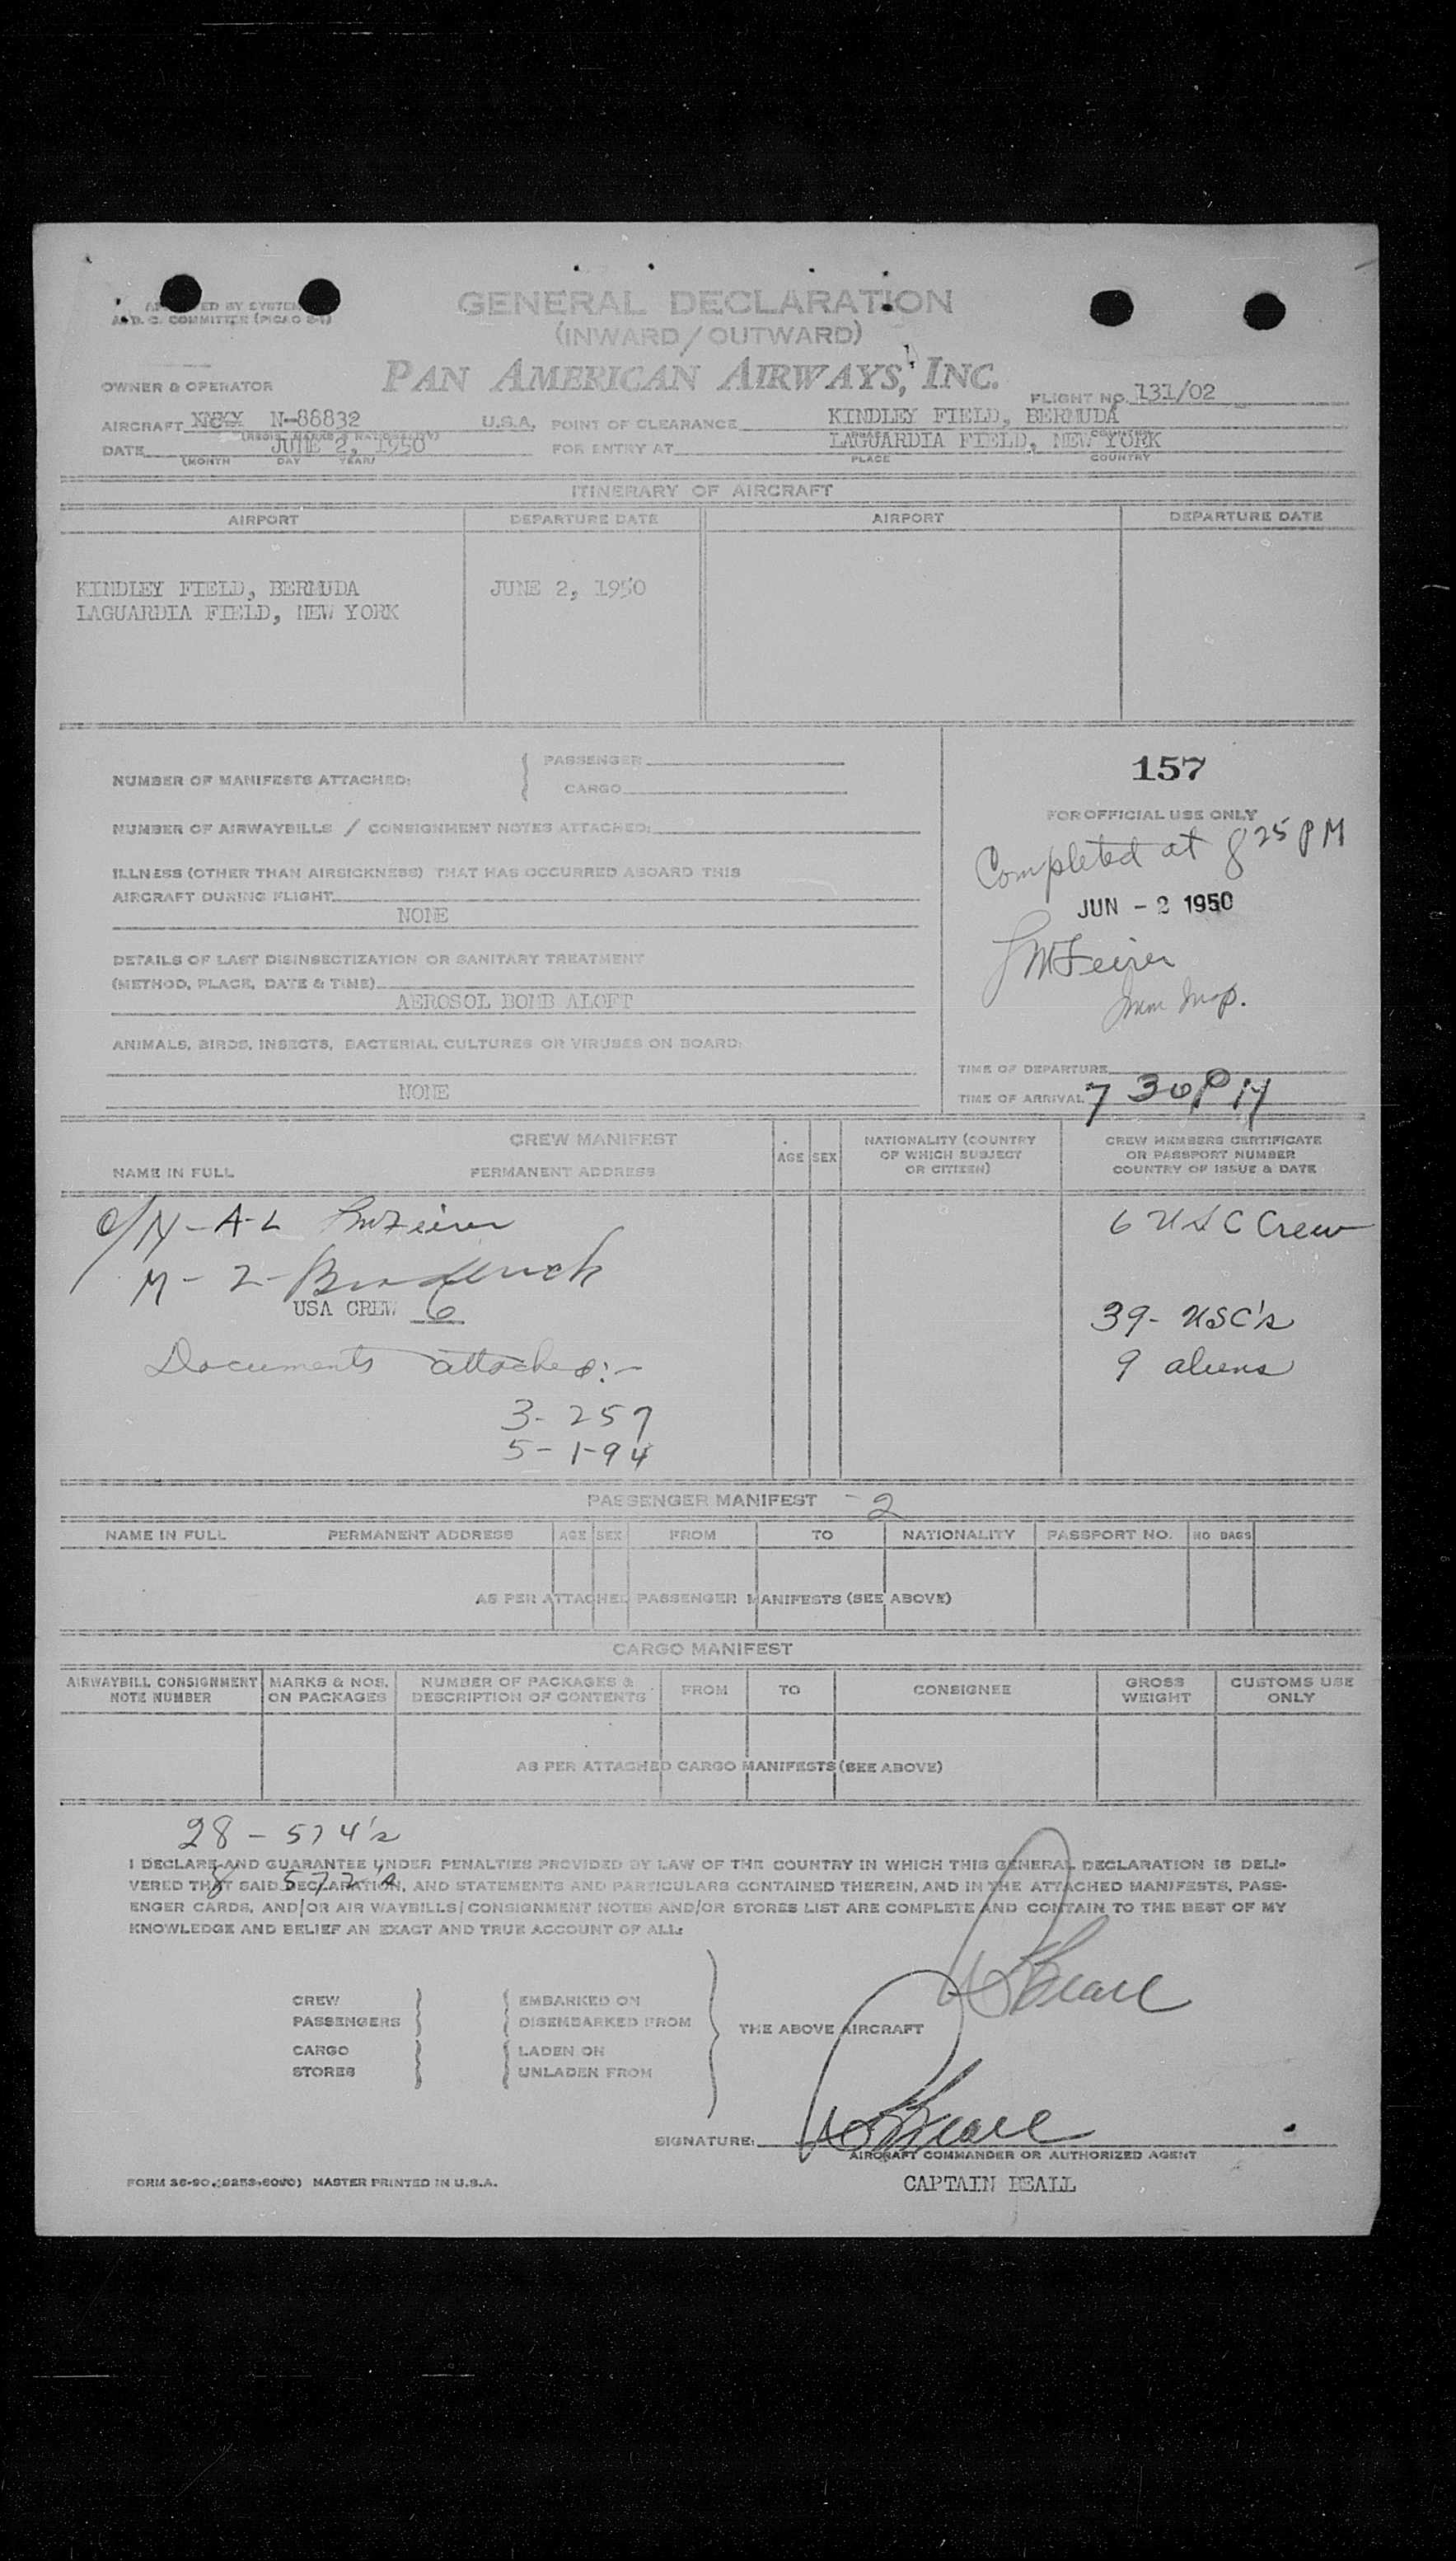 GENERAL DECLARATION
(INWARD/OUTWARD)
PAN AMERICAN AIRWAYS, INC.
OWNER & OPERATOR
FLIGHT NO. 131/02
AIRCRAFT N-88832 U.S.A. POINT OF CLEARANCE KINDLEY FIELD, BERMUDA
DATE JUNE 2, 1950 FOR ENTRY AT LAGUARDIA FIELD, NEW YORK
(MONTH DAY YEAR) PLACE COUNTRY
ITINERARY OF AIRCRAFT
AIRPORT DEPARTURE DATE AIRPORT DEPARTURE DATE
KINDLEY FIELD, BERMUDA JUNE 2, 1950
LAGUARDIA FIELD, NEW YORK
NUMBER OF MANIFESTS ATTACHED: PASSENGER
CARGO
NUMBER OF AIRWAYBILLS / CONSIGNMENT NOTES ATTACHED:
ILLNESS (OTHER THAN AIRSICKNESS) THAT HAS OCCURRED ABOARD THIS
AIRCRAFT DURING FLIGHT
NONE
DETAILS OF LAST DISINSECTIZATION OR SANITARY TREATMENT
(METHOD, PLACE, DATE & TIME)
AEROSOL BOMB ALOFT
ANIMALS, BIRDS, INSECTS, BACTERIAL CULTURES OR VIRUSES ON BOARD:
NONE
157
FOR OFFICIAL USE ONLY
Completed at 8 25 PM
JUN - 2 1950
Imm Insp.
TIME OF DEPARTURE
TIME OF ARRIVAL 7 30 PM
CREW MANIFEST
NAME IN FULL PERMANENT ADDRESS
AGE SEX
NATIONALITY (COUNTRY
OF WHICH SUBJECT
OR CITIZEN)
CREW MEMBERS CERTIFICATE
OR PASSPORT NUMBER
COUNTRY OF ISSUE & DATE
6 USC Crew
M - 2 - Broderick
USA CREW 6
39 - USC's
Documents attached:-
9 aliens
3 - 257
5 - I-94
PASSENGER MANIFEST - 2
NAME IN FULL PERMANENT ADDRESS AGE SEX FROM TO NATIONALITY PASSPORT NO. NO BAGS
AS PER ATTACHED PASSENGER MANIFESTS (SEE ABOVE)
CARGO MANIFEST
AIRWAYBILL CONSIGNMENT NOTE NUMBER
MARKS & NOS. ON PACKAGES
NUMBER OF PACKAGES & DESCRIPTION OF CONTENTS
FROM TO CONSIGNEE
GROSS WEIGHT
CUSTOMS USE ONLY
AS PER ATTACHED CARGO MANIFESTS (SEE ABOVE)
28 - 574's
8 572's
I DECLARE AND GUARANTEE UNDER PENALTIES PROVIDED BY LAW OF THE COUNTRY IN WHICH THIS GENERAL DECLARATION IS DELI-
VERED THAT SAID DECLARATION, AND STATEMENTS AND PARTICULARS CONTAINED THEREIN, AND IN THE ATTACHED MANIFESTS, PASS-
ENGER CARDS, AND/OR AIR WAYBILLS/CONSIGNMENT NOTES AND/OR STORES LIST ARE COMPLETE AND CONTAIN TO THE BEST OF MY
KNOWLEDGE AND BELIEF AN EXACT AND TRUE ACCOUNT OF ALL:
CREW EMBARKED ON
PASSENGERS DISEMBARKED FROM
THE ABOVE AIRCRAFT
CARGO LADEN ON
STORES UNLADEN FROM
SIGNATURE:
AIRCRAFT COMMANDER OR AUTHORIZED AGENT
CAPTAIN BEALL
MASTER PRINTED IN U.S.A.